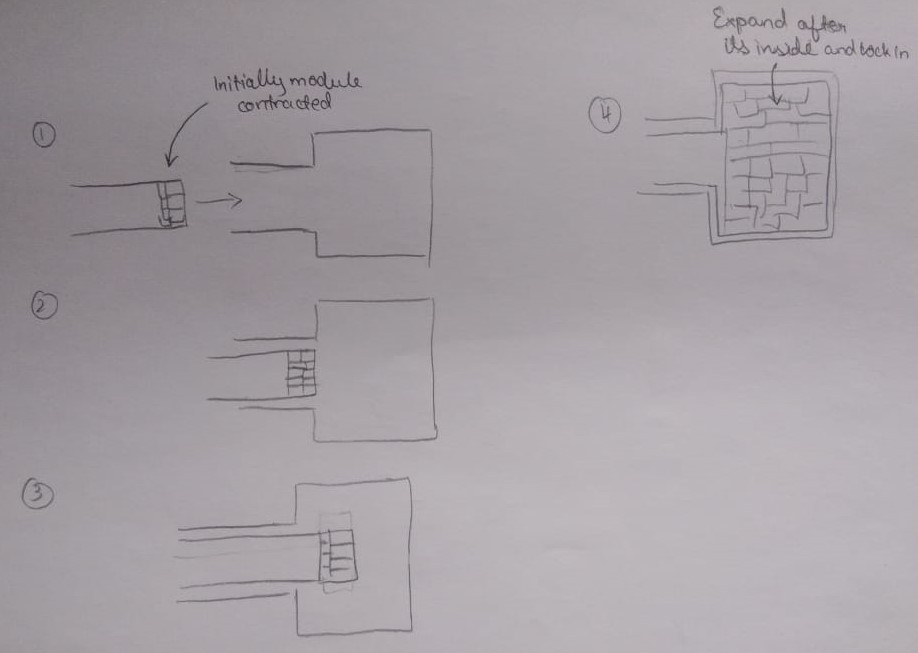 1
Initially module
contracted
2
3
4
Expand after
its inside and lock in